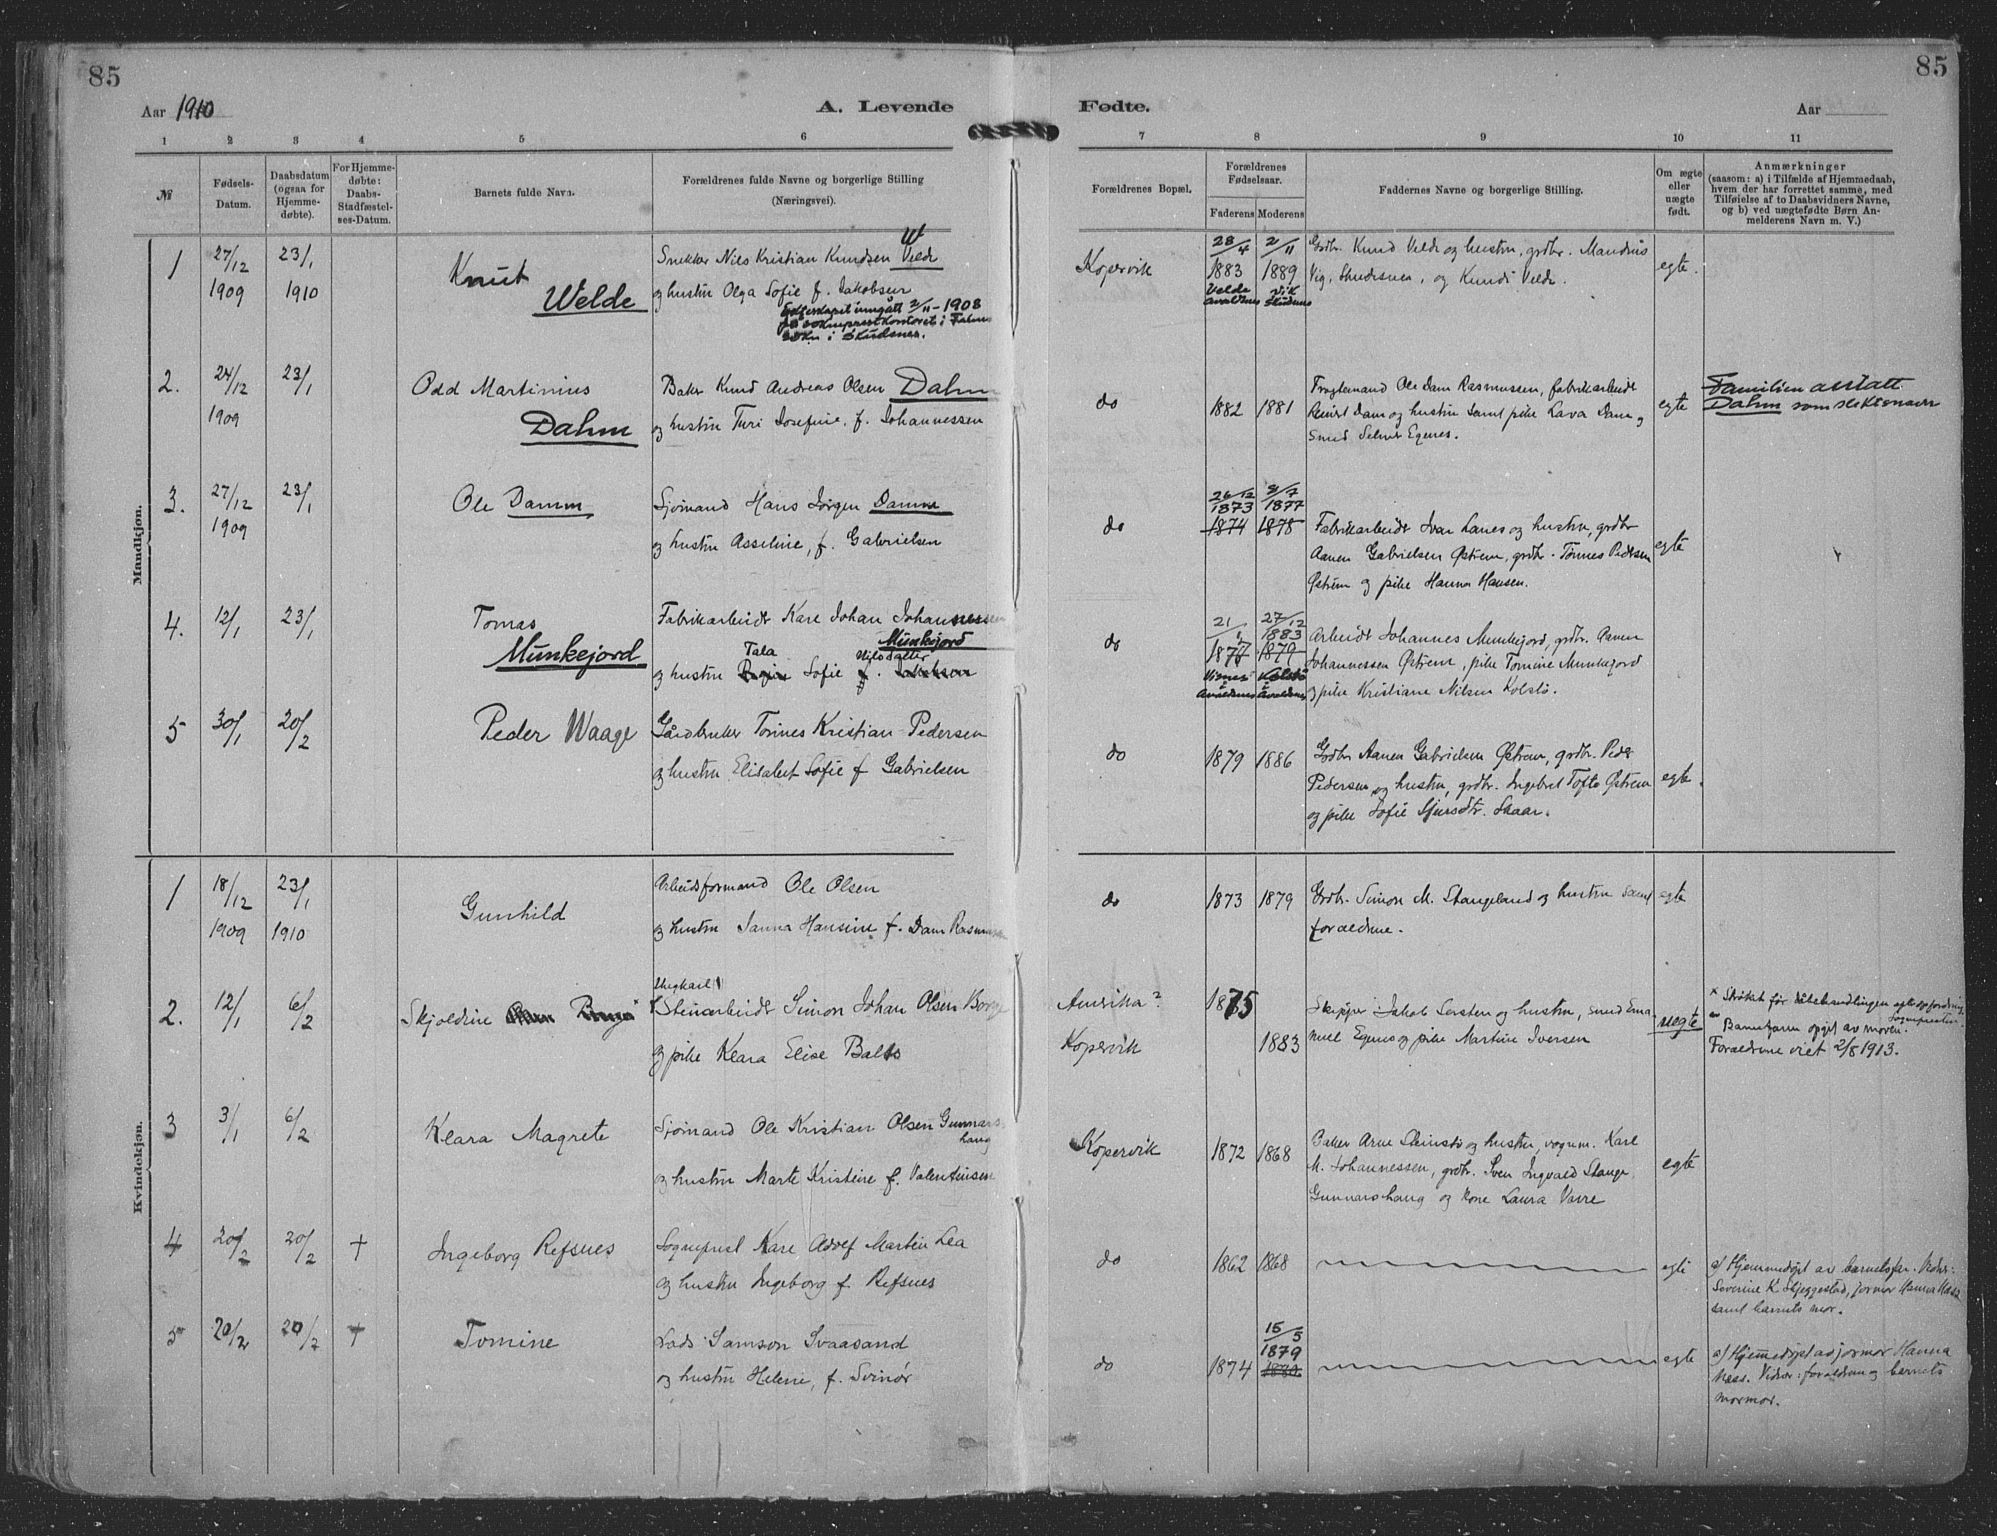 85
85
Aar 1910
A. Levende
Fødte.
Aar
1 2 3 4 5 6 7 8 9 10 11
№
Fødsels-
Datum.
Daabsdatum
(ogsaa for
Hjemme-
døbte).
For Hjemme-
døbte:
Daabs-
Stadfæstel-
ses-Datum.
Barnets fulde Navn.
Forældrenes fulde Navne og borgerlige Stilling
(Næringsvei).
Forældrenes Bopæl.
Forældrenes
Fødselsaar.
Faderens Moderens
Faddernes Navne og borgerlige Stilling.
Om ægte
eller
uægte
født.
Anmærkninger
(saasom: a) i Tilfælde af Hjemmedaab,
hvem der har forrettet samme, med
Tilføielse af to Daabsvidners Navne,
og b) ved uægtefødte Børn An-
melderens Navn m. V.)
Mandkjøn.
1
27/12
1909
23/1
1910
Knut
Welde
W
Snekker Nils Kristian Knudsen Velde
og hustru Olga Sofie f. Jakobsen
Ekteskapet inngått 2/11-1908
på sokneprestkontoret i Falnes
sokn i Skudenes.
Kopervik
28/4
1883
Velde
Avaldsnes
2/11
1889
Vik
Skudenes
Grdbr. Knud Velde og hustru, grdbr. Mandius
Vig, Skudesnes, og Kund Velde.
egte.
2.
24/12
1909
23/1
Odd Martinius
Dahm
Baker Knud Andreas Olsen Dahm
og hustru Turi Josefine, f. Johannessen
do
1882 1881
Ole Dam Rasmussen, fabrikarbeider
Dam og hustru samt pike Lava Dam og
Smed Selmer Egenes.
egte
Familien antatt
Dahm som slektsnavn
3.
27/12
1909
23/1
Ole Damm
Sjømand Hans Jørgen Damm
og hustru Asseline, f. Gabrielsen
do
26/12
1873
1874
8/7
1877
1878
Fabrikarbeider Ivar Lanes og hustru, grdbr
Aanen Gabrielsen Østrem, grdbr. Tønnes Pedersen
Østrem og pike Hanna Hansen.
egte
4.
12/1
23/1
Tomas
Munkejord
Fabrikarbeider Kare Johan Johannessen
Munkejord
Tala Nilsdatter
og hustru Sofie f. Jakobsen
do
21
1877
Avaldsnes
27/12
1883
1879
Kolstø
Avaldsnes
Arbeider Johannes Munkejord, grdbr. Aanen
Johannessen Østrem, pike Tomine Munkejord
og pike Kristiane Nilsen Kolstø.
5
30/1
20/2
Peder Waage
Gårdbruker Tønnes Kristian Pedersen
og hustru Elisabet Sofie f Gabrielsen
do
1879 1886
Grdbr Aanen Gabrielsen Østrem, grdbr. Peder
Pedersen og hustru, grdbr. Ingebret Tofte Østrem
og pike Sofie Sjursdtr. Skaar.
egte.
Kvindekjøn.
1
18/12
1909
23/1
1910
Gunhild
Arbeidsformand Ole Olsen
og hustru Janna Hansine f. Dam Rasmussen
do
1873 1879
Grdbr. Simon M. Stangeland og hustru samt
forældrene.
egte
2.
12/1
6/2
Skjoldine Olsen
Ungkarl
Stenarbeider Simon Johan Olsen Borge
og pike Klara Elise Balto
Amerika?
Kopervik
1875
1883
Skipper Jakob Sersten og hustru, Smed Ema
nuel Egenes og pike Martine Iversen
uegte
Barnefaren opgit av moren.
Forældrene viet 2/8 1913.
3
3/1
6/2
Klara Magrete
Sjømand Ole Kristian Olsen Gunnars
haug
og hustru Marte Kristine f. Valentinsen
Kopervik
1872 1868
Baker Arne Steinstø og hustru, vognm. Karl
M. Johannessen, grdbr. Sven Ingvald Stange
Gunnarshaug og kone Laura Vavre
egte
4
20/2
20/2
†
Ingeborg Refsnes
Sogneprest Kare Adolf Martin Lea
og hustru Ingeborg f. Refsnes
do
1862 1868
egte
a) Hjemmedøpt av barnets far. Vidner:
Severine K. Skjeggestad, formor Hanna Næss
samt barnets mor.
5
20/2
20/2
†
Tomine
Lods Samson Svaasand
og hustru Helene, f. Svinør
do
1874
15/5
1879
1880
egte
a) Hjemmedøpt av jormor Hanna
Næss. Vidner: forældrene og barnets
mormor.